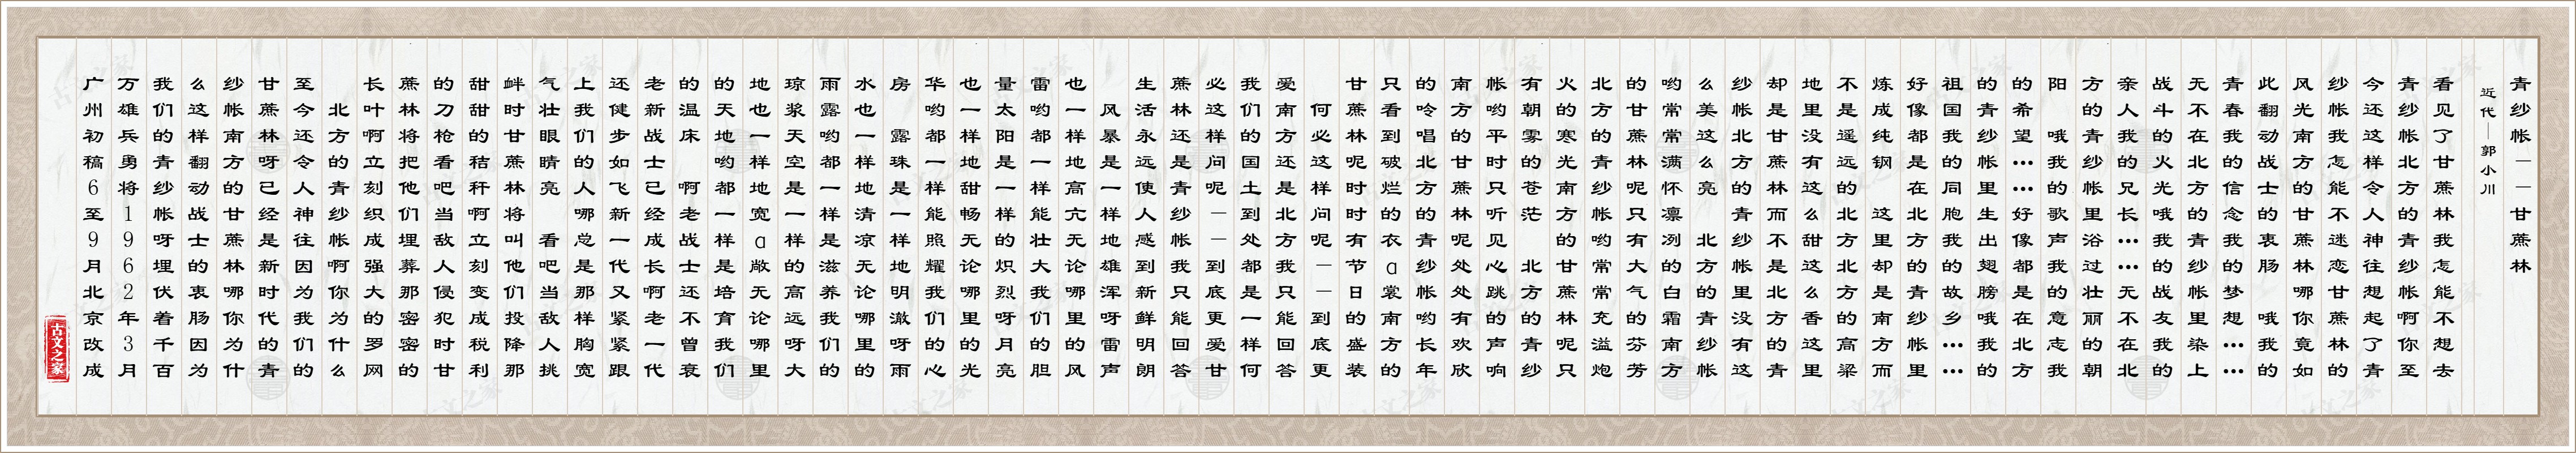 青纱帐——甘蔗林
近代—郭小川
看见了甘蔗林我怎能不想去
青纱帐北方的青纱帐啊你至
今还这样令人神往想起了青
纱帐我怎能不迷恋甘蔗林的
风光南方的甘蔗林哪你竟如
此翻动战士的衷肠 哦我的
青春我的信念我的梦想……
无不在北方的青纱帐里染上
战斗的火光哦我的战友我的
亲人我的兄长……无不在北
方的青纱帐里浴过壮丽的朝
阳 哦我的歌声我的意志我
的希望……好像都是在北方
的青纱帐里生出翅膀哦我的
祖国我的同胞我的故乡……
好像都是在北方的青纱帐里
炼成纯钢 这里却是南方而
不是遥远的北方北方的高粱
地里没有这么甜这么香这里
却是甘蔗林而不是北方的青
纱帐北方的青纱帐里没有这
么美这么亮 北方的青纱帐
哟常常满怀凛冽的白霜南方
的甘蔗林呢只有大气的芬芳
北方的青纱帐哟常常充溢炮
火的寒光南方的甘蔗林呢只
有朝雾的苍茫 北方的青纱
帐哟平时只听见心跳的声响
南方的甘蔗林呢处处有欢欣
的呤唱北方的青纱帐哟长年
只看到破烂的衣ɑ裳南方的
甘蔗林呢时时有节日的盛装
何必这样问呢——到底更
爱南方还是北方我只能回答
我们的国土到处都是一样何
必这样问呢——到底更爱甘
蔗林还是青纱帐我只能回答
生活永远使人感到新鲜明朗
风暴是一样地雄浑呀雷声
也一样地高亢无论哪里的风
雷哟都一样能壮大我们的胆
量太阳是一样的炽烈呀月亮
也一样地甜畅无论哪里的光
华哟都一样能照耀我们的心
房 露珠是一样地明澈呀雨
水也一样地清凉无论哪里的
雨露哟都一样是滋养我们的
琼浆天空是一样的高远呀大
地也一样地宽ɑ敞无论哪里
的天地哟都一样是培育我们
的温床 啊老战士还不曾衰
老新战士已经成长啊老一代
还健步如飞新一代又紧紧跟
上我们的人哪总是那样胸宽
气壮眼睛亮 看吧当敌人挑
衅时甘蔗林将叫他们投降那
甜甜的秸秆啊立刻变成税利
的刀枪看吧当敌人侵犯时甘
蔗林将把他们埋葬那密密的
长叶啊立刻织成强大的罗网
北方的青纱帐啊你为什么
至今还令人神往因为我们的
甘蔗林呀已经是新时代的青
纱帐南方的甘蔗林哪你为什
么这样翻动战士的衷肠因为
我们的青纱帐呀埋伏着千百
万雄兵勇将1962年3月
广州初稿6至9月北京改成
古文之家